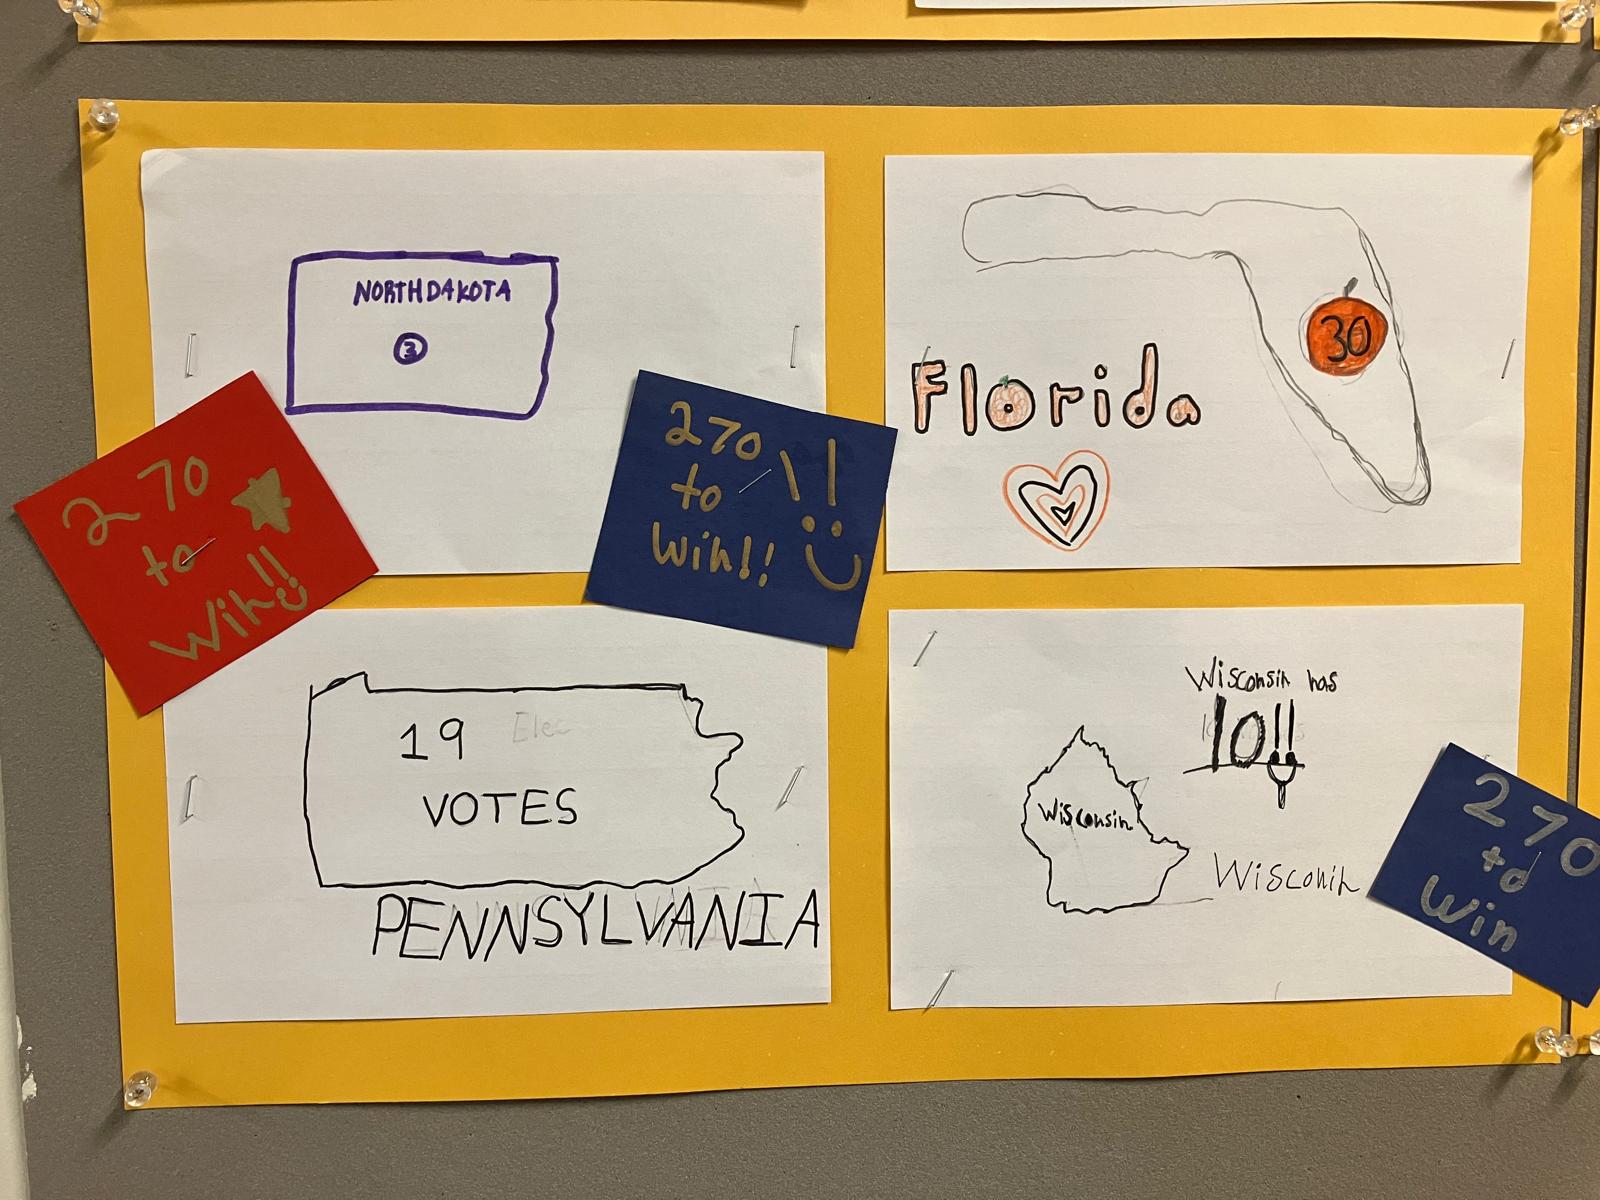 NORTH DAKOTA
3
Florida
30
270
to
Win!!
270
to
Win!!
!!
19 Elec
VOTES
PENNSYLVANIA
Wisconsin has
10!!
Wisconsin
Wisconin
270
to
Win